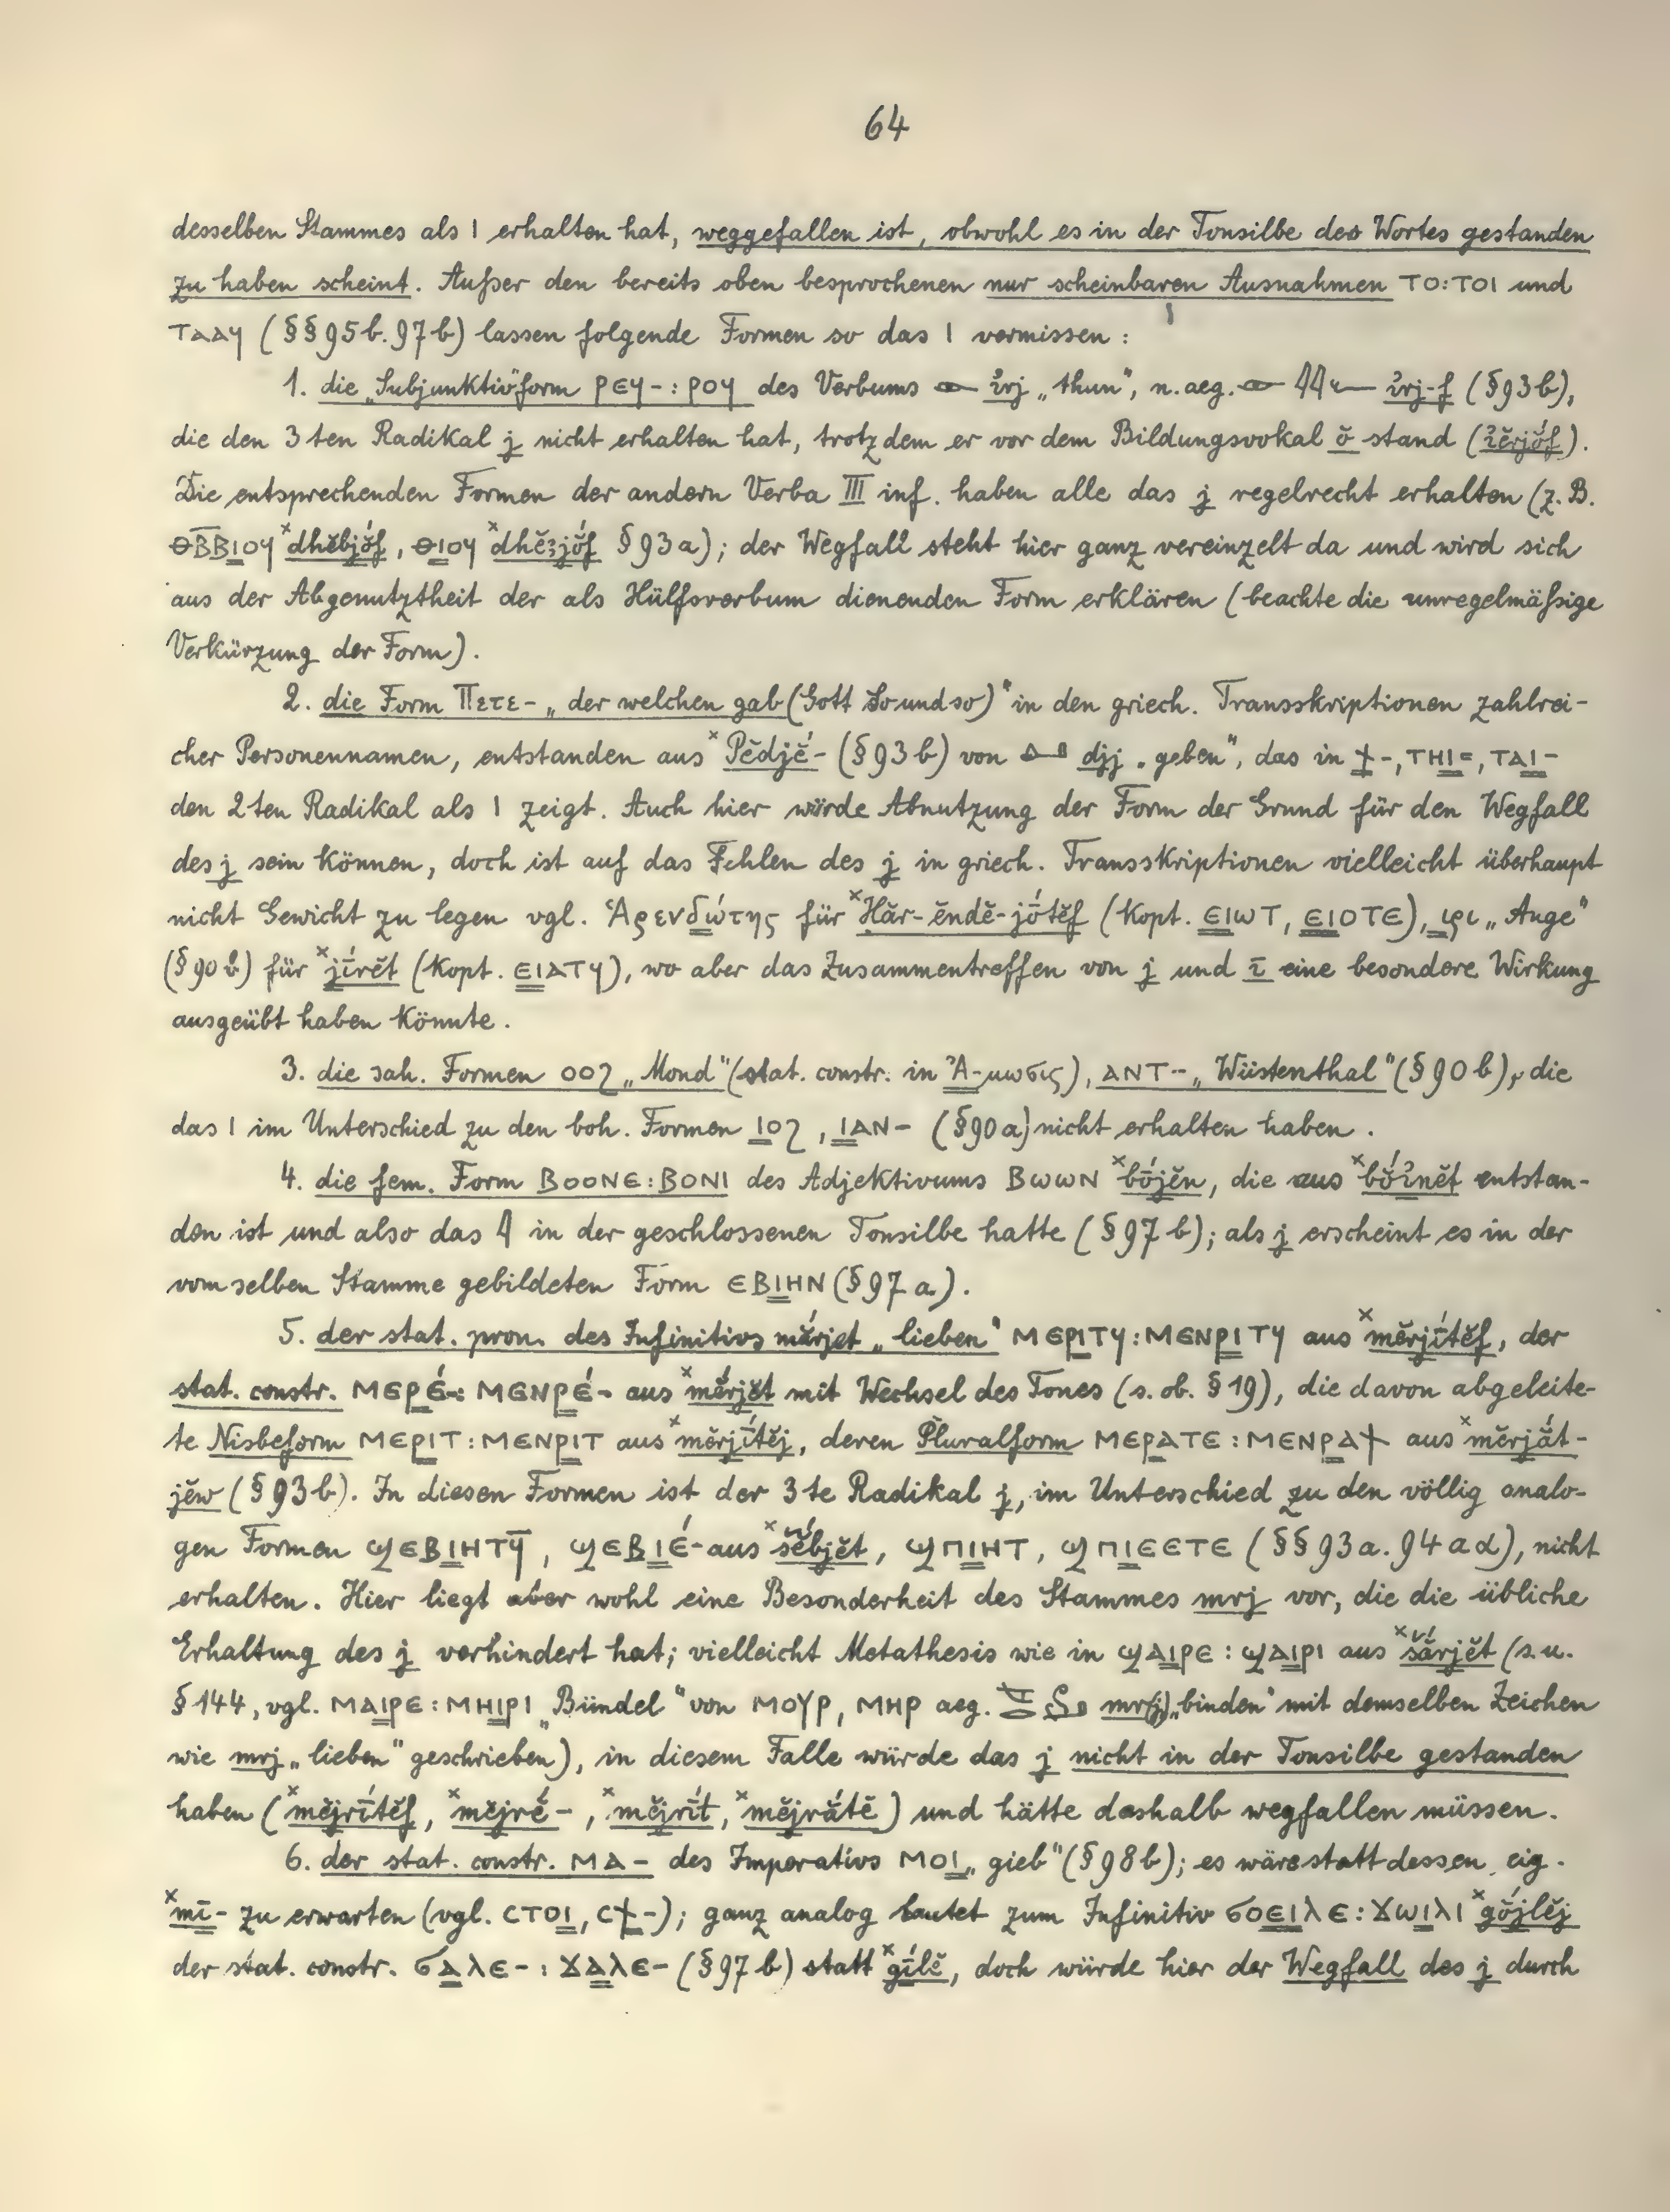 64
desselben Stammes als ⲓ erhalten hat, weggefallen ist, obwohl es in der Tonsilbe des Wortes gestanden
zu haben scheint. Außer den bereits oben besprochenen nur scheinbaren Ausnahmen ⲧⲟ:ⲧⲟⲓ und
ⲧⲁⲁϥ (§§95b.97b) lassen folgende Formen so das ⲓ vermissen:
1. die „Subjunktiv"form ⲣⲉϥ-: ⲣⲟϥ des Verbums 𓁹 ı͗rj „thun", n. aeg. 𓁹 𓇋𓇋𓆑 ı͗rj-f (§93b),
die den 3ten Radikal j nicht erhalten hat, trotzdem er vor dem Bildungsvokal ŏ stand (ı͗ĕrjŏ́f).
Die entsprechenden Formen der andern Verba III inf. haben alle das j regelrecht erhalten (z. B.
ⲑⲃ̅ⲃⲓⲟϥ ˣdhĕbjŏ́f, ⲑⲓⲟϥ ˣdhĕꜣjŏ́f §93a); der Wegfall steht hier ganz vereinzelt da und wird sich
aus der Abgenutztheit der als Hülfsverbum dienenden Form erklären (beachte die unregelmäßige
Verkürzung der Form).
2. die Form Πετε- „der welchen gab (Gott So und so)" in den griech. Transskriptionen zahlrei-
cher Personennamen, entstanden aus ˣPĕdjĕ́- (§93b) von 𓂞 djj „geben", das in ϯ-, ⲧⲏⲓ=, ⲧⲁⲓ-
den 2ten Radikal als ⲓ zeigt. Auch hier würde Abnutzung der Form der Grund für den Wegfall
des j sein können, doch ist auf das Fehlen des j in griech. Transskriptionen vielleicht überhaupt
nicht Gewicht zu legen vgl. Ἁρενδώτης für ˣHăr-ĕndĕ-jṓtĕf (Kopt. ⲉⲓⲱⲧ, ⲉⲓⲟⲧⲉ), ιρι „Auge"
(§90b) für ˣjī́rĕt (Kopt. ⲉⲓⲁⲧϥ), wo aber das Zusammentreffen von j und ī eine besondere Wirkung
ausgeübt haben könnte.
3. die sah. Formen ⲟⲟϩ „Mond" (stat. constr. in Ἄ-μωσις), ⲁⲛⲧ- „Wüstenthal" (§90b), die
das ⲓ im Unterschied zu den boh. Formen ⲓⲟϩ, ⲓⲁⲛ- (§90a) nicht erhalten haben.
4. die fem. Form ⲃⲟⲟⲛⲉ:ⲃⲟⲛⲓ des Adjektivums ⲃⲱⲱⲛ ˣbṓjĕn, die aus ˣbŏ́ı͗nĕt entstan-
den ist und also das 𓇋 in der geschlossenen Tonsilbe hatte (§97b); als j erscheint es in der
vom selben Stamme gebildeten Form ⲉⲃⲓⲏⲛ (§97a).
5. der stat. pron. des Infinitivs mĕ́rjet „lieben" ⲙⲉⲣⲓⲧϥ:ⲙⲉⲛⲣⲓⲧϥ aus ˣmĕrjī́tĕf, der
stat. constr. ⲙⲉⲣⲉ́-: ⲙⲉⲛⲣⲉ́- aus ˣmĕ́rjĕt mit Wechsel des Tones (s. ob. §19), die davon abgeleite-
te Nisbeform ⲙⲉⲣⲓⲧ:ⲙⲉⲛⲣⲓⲧ aus ˣmĕrjī́tĕj, deren Pluralform ⲙⲉⲣⲁⲧⲉ:ⲙⲉⲛⲣⲁϯ aus ˣmĕrjắt-
jĕw (§93b). In diesen Formen ist der 3te Radikal j, im Unterschied zu den völlig analo-
gen Formen ϣⲉⲃⲓⲏⲧϥ̅, ϣⲉⲃⲓⲉ́- aus ˣšĕ́bjĕt, ϣⲡⲓⲏⲧ, ϣⲡⲓⲉⲉⲧⲉ (§§93a.94aα), nicht
erhalten. Hier liegt aber wohl eine Besonderheit des Stammes mrj vor, die die übliche
Erhaltung des j verhindert hat; vielleicht Metathesis wie in ϣⲁⲓⲣⲉ:ϣⲁⲓⲣⲓ aus ˣšắrjĕt (s. u.
§144, vgl. ⲙⲁⲓⲣⲉ:ⲙⲏⲓⲣⲓ „Bündel" von ⲙⲟⲩⲣ, ⲙⲏⲣ aeg. mr(j) „binden" mit demselben Zeichen
wie mrj „lieben" geschrieben), in diesem Falle würde das j nicht in der Tonsilbe gestanden
haben (ˣmĕjrī́tĕf, ˣmĕjrĕ́-, ˣmĕjrī́t, ˣmĕjrắtĕ) und hätte deshalb wegfallen müssen.
6. der stat. constr. ⲙⲁ- des Imperativs ⲙⲟⲓ „gieb" (§98b); es wäre statt dessen eig.
ˣmī- zu erwarten (vgl. ⲥⲧⲟⲓ, ⲥϯ-); ganz analog lautet zum Infinitiv ϭⲟⲉⲓⲗⲉ:ϫⲱⲓⲗⲓ ˣgŏ́jlĕj
der stat. constr. ϭⲁⲗⲉ-: ϫⲁⲗⲉ- (§97b) statt ˣgī́lĕ, doch würde hier der Wegfall des j durch